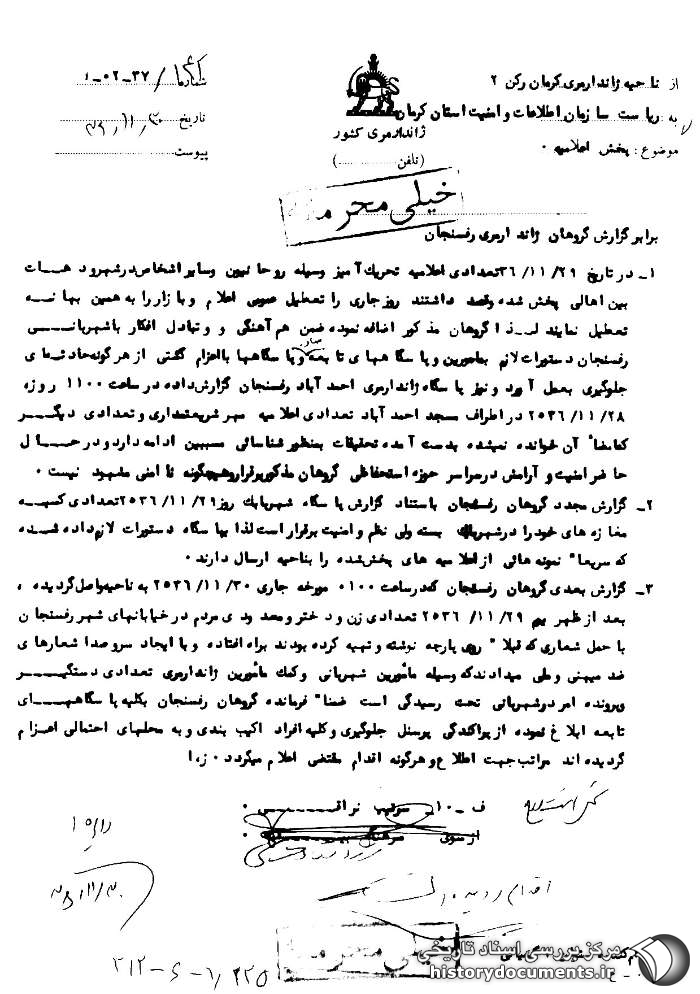 از ناحیه ژاندارمری کرمان رکن ۲
به ریاست سازمان اطلاعات و امنیت استان کرمان
موضوع: پخش اعلامیه ۰
شماره ۳۷-۰۲-۱
تاریخ
پیوست
ژاندارمری کشور
(تلفن)
خیلی محرمانه
برابر گزارش گروهان ژاندارمری رفسنجان
۱ـ در تاریخ ۳۶/۱۱/۲۹ تعدادی اعلامیه تحریک آمیز وسیله روحانیون و سایر اشخاص در شهر و دهات
بین اهالی پخش شده و قصد داشتند روز جاری را تعطیل عمومی اعلام و بازار را به همین بهانه
تعطیل نمایند لذا گروهان مذکور اضافه نموده ضمن هم آهنگی و و تبادل افکار با شهربانی
رفسنجان دستورات لازم بمامورین و پاسگاههای تابعه و پاسگاهها با اعزام گشتی از هرگونه حادثه‌ای
جلوگیری بعمل آورد و نیز پاسگاه ژاندارمری احمد آباد رفسنجان گزارش داده در ساعت ۱۱۰۰ روز
۲۵۳۶/۱۱/۲۸ در اطراف مسجد احمد آباد تعدادی اعلامیه مهر شریعتمداری و تعدادی دیگر
که امضاً آن خوانده نمیشده بدست آمده تحقیقات بمنظور شناسائی مسببین ادامه دارد و در حال
حاضر امنیت و آرامش در سراسر حوزه استحفاظی گروهان مذکور برقرار و هیچگونه ناامنی مشهود نیست ۰
۲ـ گزارش مجدد گروهان رفسنجان باستناد گزارش پاسگاه شهربابک روز ۲۵۳۶/۱۱/۲۹ تعدادی کسبه
مغازه های خود را در شهربابک بسته ولی نظم و امنیت برقرار است لذا بپاسگاه دستورات لازم داده شده
که سریعا" نمونه هائی از اعلامیه های پخش شده را بناحیه ارسال دارند ۰
۳ـ گزارش بعدی گروهان رفسنجان که در ساعت ۰۱۰۰ مورخه جاری ۲۵۳۶/۱۱/۳۰ به ناحیه واصل گردیده ،
بعد از ظهر یوم ۲۵۳۶/۱۱/۲۹ تعدادی زن و دختر و معدودی مردم در خیابانهای شهر رفسنجان
با حمل شعاری که قبلا" روی پارچه نوشته و تهیه کرده بودند براه افتاده و با ایجاد سر و صدا شعارهای
ضد میهنی و ملی میدادند که وسیله مأمورین شهربانی و کمک مأمورین ژاندارمری تعدادی دستگیر
و پرونده امر در شهربانی تحت رسیدگی است ضمنا" فرمانده گروهان رفسنجان بکلیه پاسگاههای
تابعه ابلاغ نموده از پراکندگی پرسنل جلوگیری و کلیه افراد اکیپ بندی و به محلهای احتمالی اعزام
گردیده اند مراتب جهت اطلاع و هرگونه اقدام مقتضی اعلام میگردد ۰ ز.ا
ف ـ ۱۰ـ سرتیپ نراقی ۰
از سوی سرهنگ
خیلی محرمانه
مرکز بررسی اسناد تاریخی
historydocuments.ir